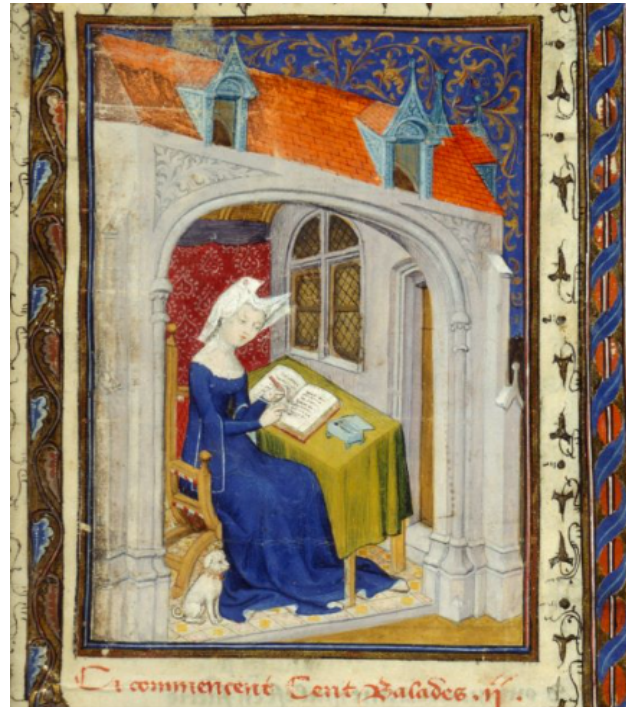 Cy commencent Cent Balades .ii.